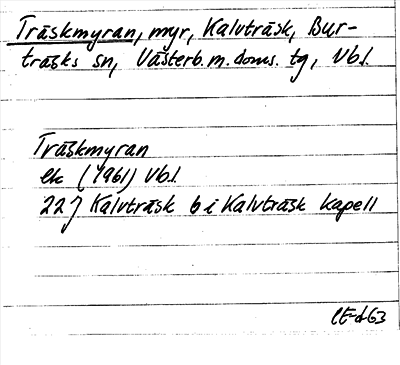 Träskmyran, myr, Kalvträsk, Bur-
träsks sn, Västerb. m. doms. tg, Vbl.
Träskmyran
ek (1961) Vbl.
22J Kalvträsk b i Kalvträsk kapell